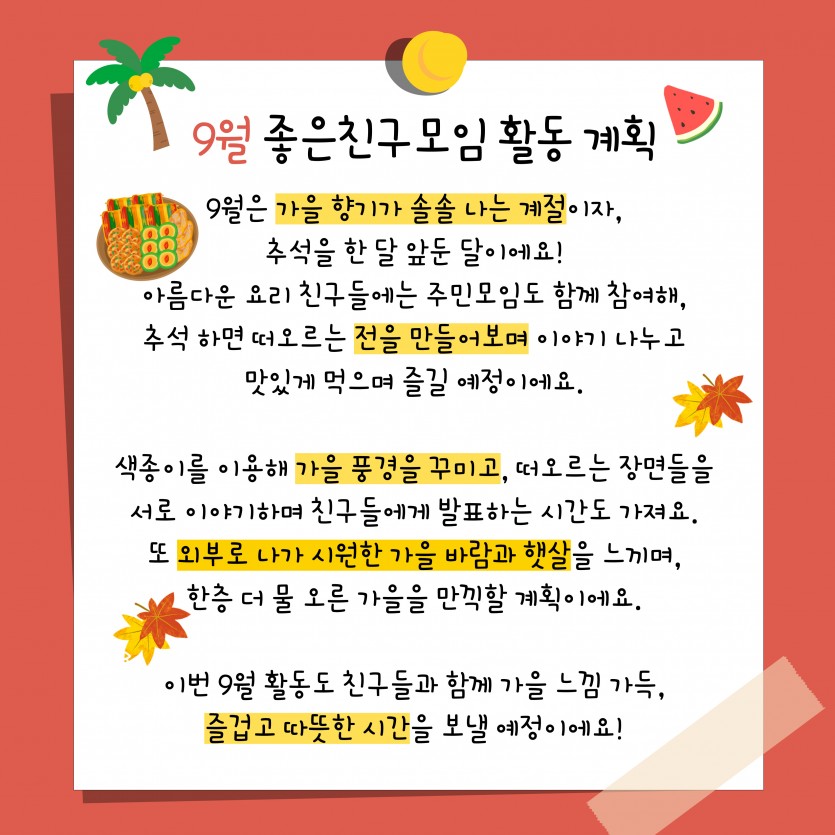 9월 좋은친구모임 활동 계획
9월은 가을 향기가 솔솔 나는 계절이자,
추석을 한 달 앞둔 달이에요!
아름다운 요리 친구들에는 주민모임도 함께 참여해,
추석 하면 떠오르는 전을 만들어보며 이야기 나누고
맛있게 먹으며 즐길 예정이에요.
색종이를 이용해 가을 풍경을 꾸미고, 떠오르는 장면들을
서로 이야기하며 친구들에게 발표하는 시간도 가져요.
또 외부로 나가 시원한 가을 바람과 햇살을 느끼며,
한층 더 물 오른 가을을 만끽할 계획이에요.
이번 9월 활동도 친구들과 함께 가을 느낌 가득,
즐겁고 따뜻한 시간을 보낼 예정이에요!